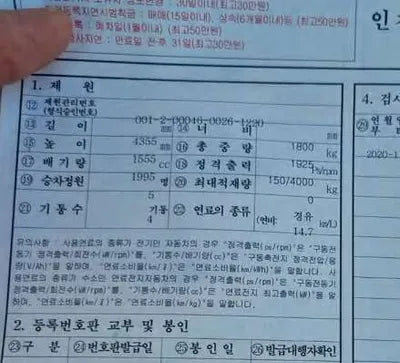 30일이내(최고30만원)
등록지연시범칙금 : 매매(15일이내), 상속(6개월이내)등 (최고50만원)
폐차일(1개월이내) (최고50만원)
검사지연 - 만료일 전후 31일(최고30만원)
인
1. 제 원
4. 검사
⑫ 제원관리번호
(형식승인번호)
001-2-00046-0026-1220
⑬ 길 이
⑭ 너 비
mm
mm
⑮ 높 이
4355
⑯ 총 중 량
1800
mm
kg
⑰ 배 기 량
1555
⑱ 정격출력
1925
cc
Ps/rpm
⑲ 승차정원
1995
⑳ 최대적재량
150/4000
명
kg
5
0
㉑ 기 통 수
기통
㉒ 연료의 종류
경유
4
(연비:
14.7
km/L)
연월일
2020-1
유의사항 : 사용연료의 종류가 전기인 자동차의 경우 "정격출력(ps/rpm)"은 "구동전
동기 정격출력/회전수(㎾/rpm)"를, "기통수/배기량(cc)"는 "구동축전지 정격전압/용
량(V/Ah)"을 말하며, "연료소비율(㎞/ℓ)"은 "연료소비율(㎞/㎾h)"을 말합니다. 사
용연료의 종류가 수소인 연료전지자동차의 경우 "정격출력(ps/rpm)"은 "구동전동기
정격출력/회전수(㎾/rpm)"를, "기통수/배기량(cc)"는 "연료전지 최고출력(㎾)"을 말
하며, "연료소비율(㎞/ℓ)"은 "연료소비율(㎞/kg)"을 말합니다.
2. 등록번호판 교부 및 봉인
㉓ 구 분
㉔ 번호판발급일
㉕ 봉 인 일
㉖ 발급대행자확인